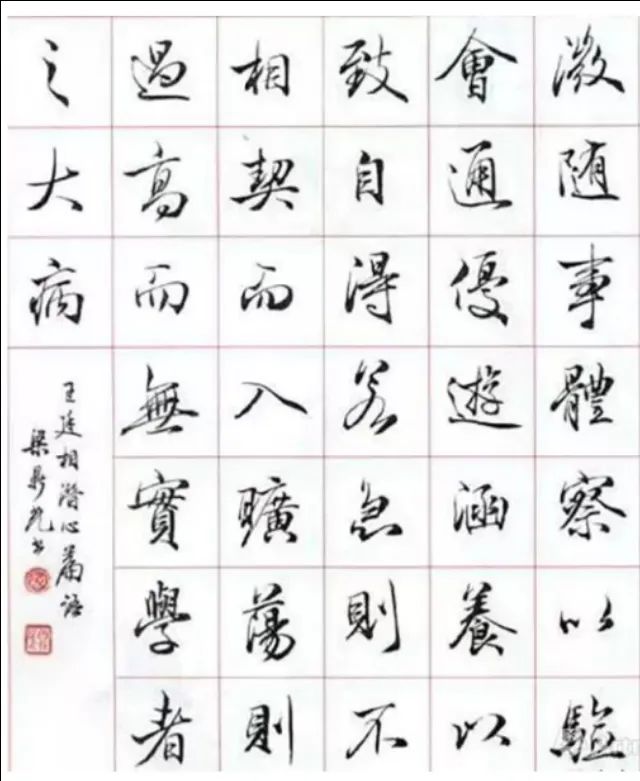 微随事體察以驗
會通優遊涵養以
致自得若急則不
相契而入曠蕩則
過高而無實學者
之大病
王廷相潛心篇語
梁鼎光書